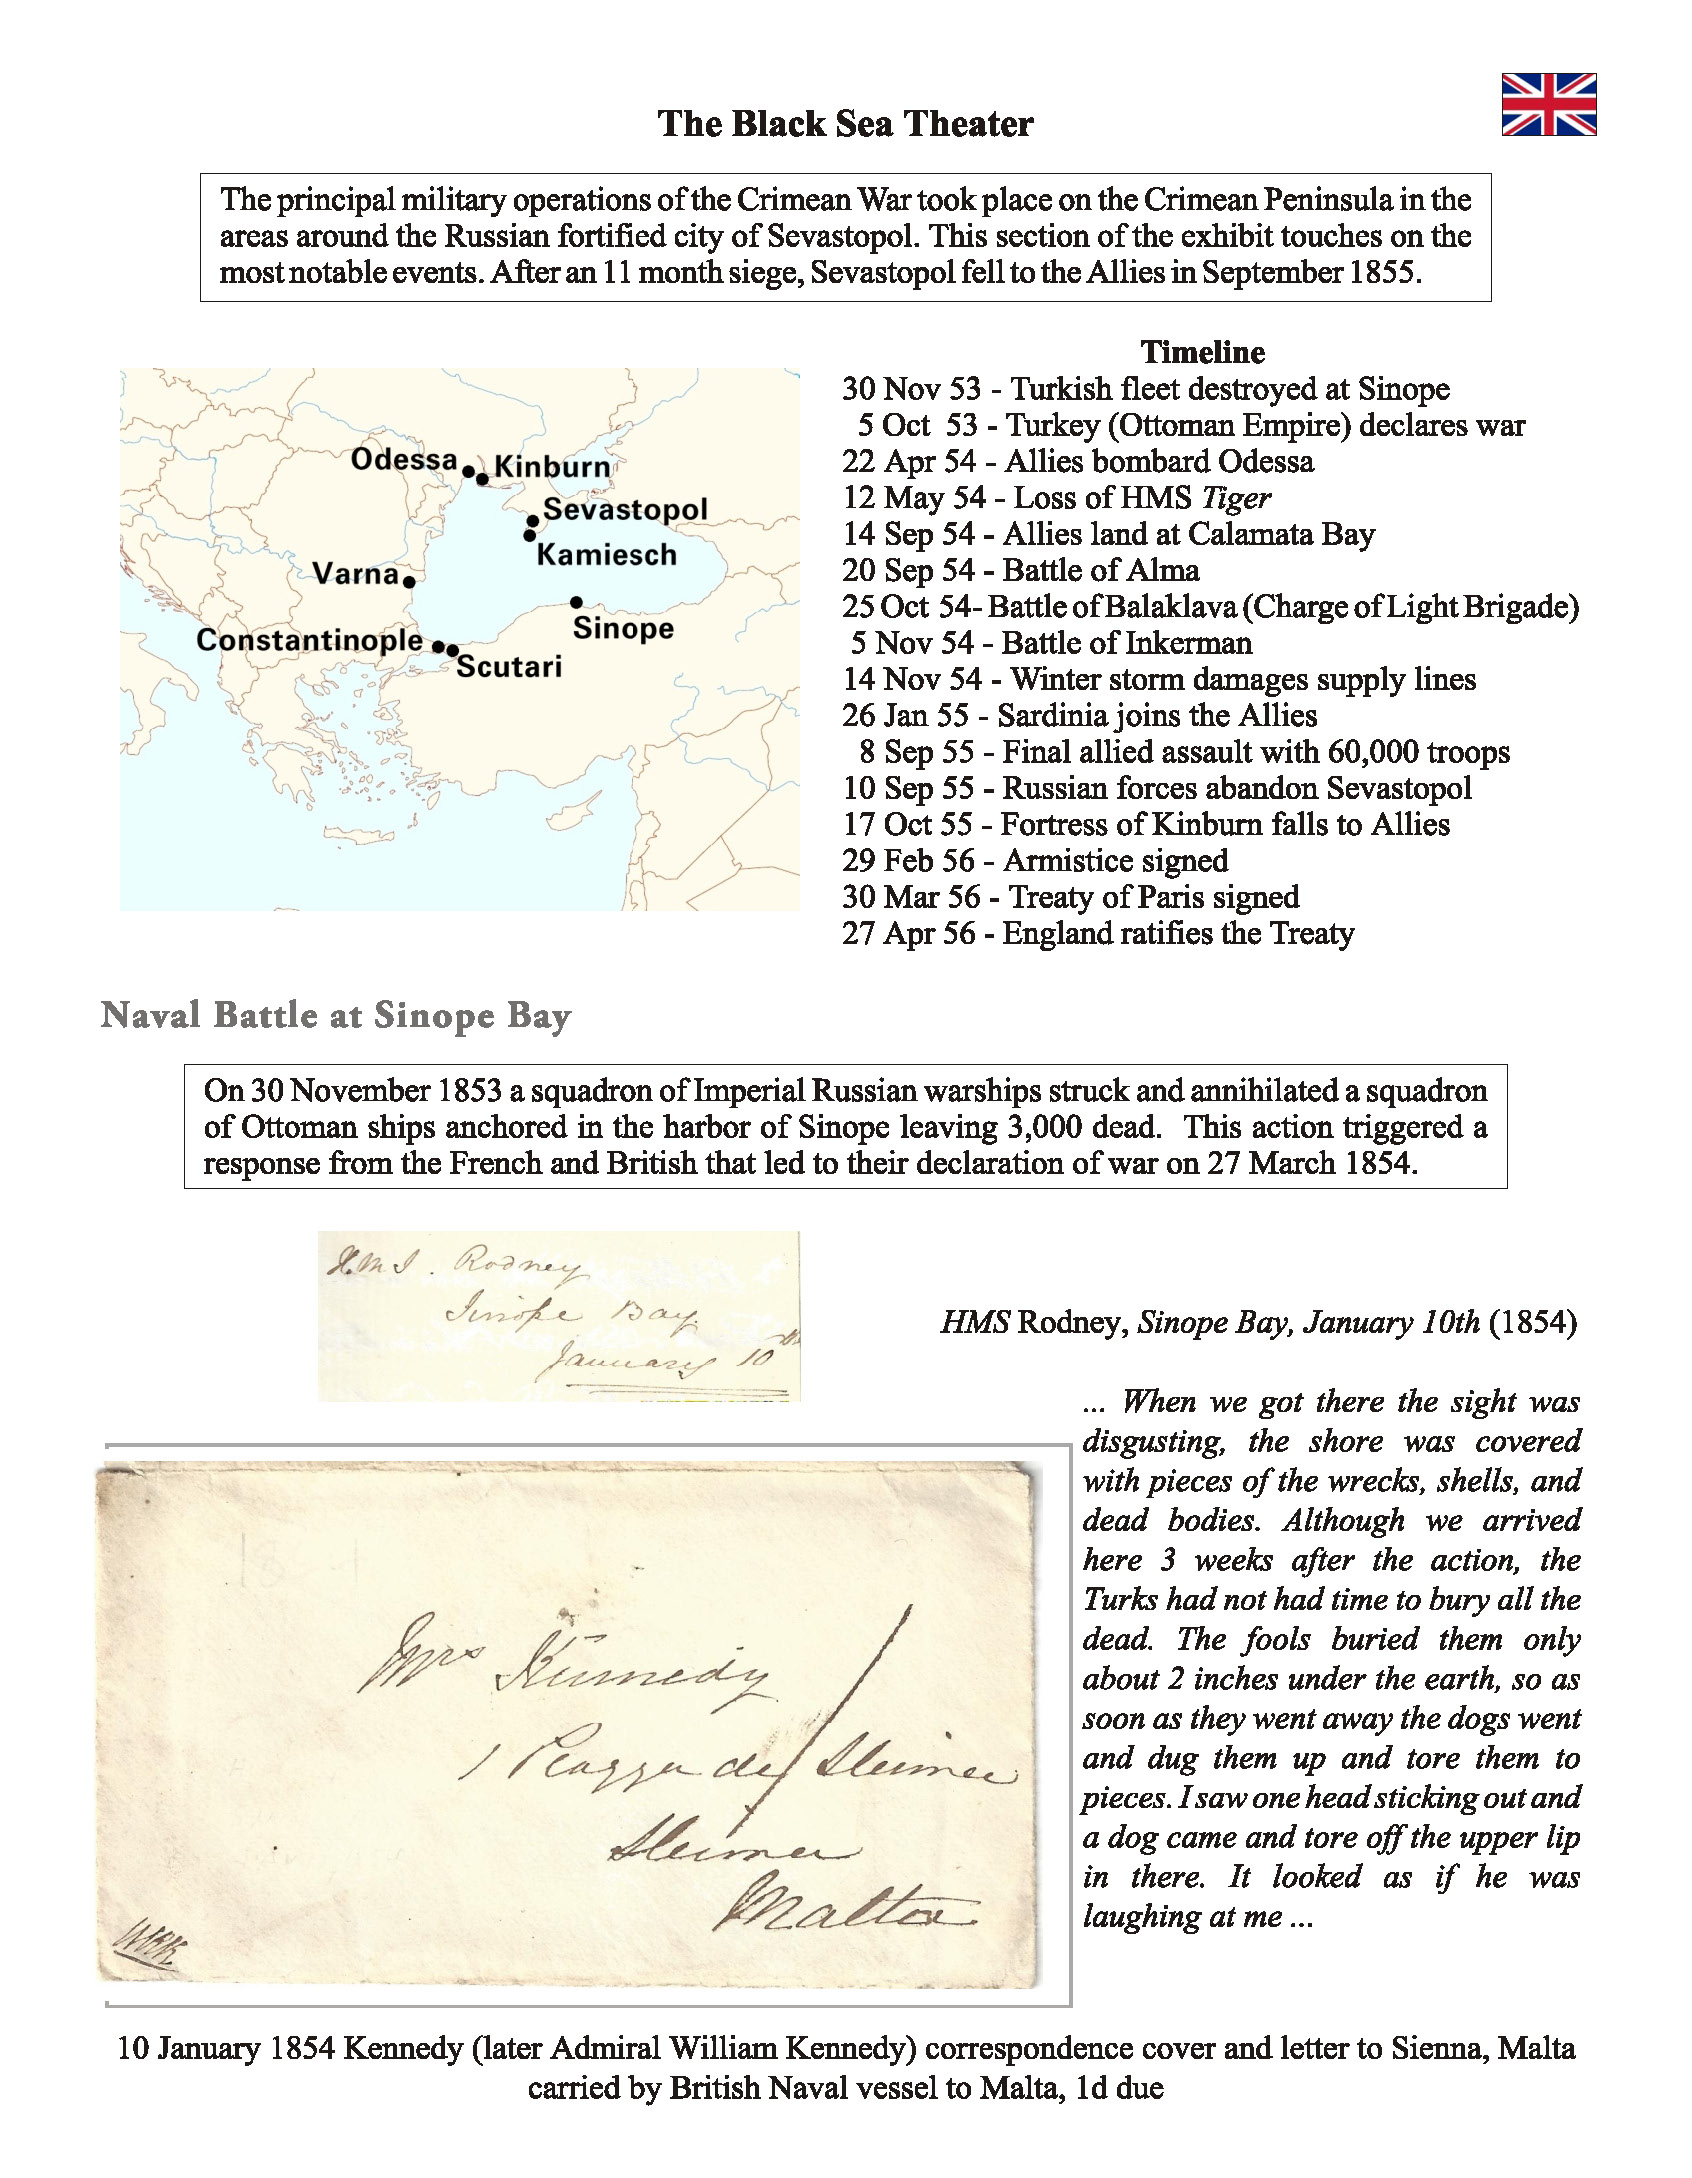 The Black Sea Theater
The principal military operations of the Crimean War took place on the Crimean Peninsula in the
areas around the Russian fortified city of Sevastopol. This section of the exhibit touches on the
most notable events. After an 11 month siege, Sevastopol fell to the Allies in September 1855.
Odessa
Kinburn
Sevastopol
Kamiesch
Varna
Sinope
Constantinople
Scutari
Timeline
30 Nov 53 - Turkish fleet destroyed at Sinope
5 Oct 53 - Turkey (Ottoman Empire) declares war
22 Apr 54 - Allies bombard Odessa
12 May 54 - Loss of HMS Tiger
14 Sep 54 - Allies land at Calamata Bay
20 Sep 54 - Battle of Alma
25 Oct 54- Battle of Balaklava (Charge of Light Brigade)
5 Nov 54 - Battle of Inkerman
14 Nov 54 - Winter storm damages supply lines
26 Jan 55 - Sardinia joins the Allies
8 Sep 55 - Final allied assault with 60,000 troops
10 Sep 55 - Russian forces abandon Sevastopol
17 Oct 55 - Fortress of Kinburn falls to Allies
29 Feb 56 - Armistice signed
30 Mar 56 - Treaty of Paris signed
27 Apr 56 - England ratifies the Treaty
Naval Battle at Sinope Bay
On 30 November 1853 a squadron of Imperial Russian warships struck and annihilated a squadron
of Ottoman ships anchored in the harbor of Sinope leaving 3,000 dead. This action triggered a
response from the French and British that led to their declaration of war on 27 March 1854.
H.M.S. Rodney
Sinope Bay.
January 10th
HMS Rodney, Sinope Bay, January 10th (1854)
... When we got there the sight was
disgusting, the shore was covered
with pieces of the wrecks, shells, and
dead bodies. Although we arrived
here 3 weeks after the action, the
Turks had not had time to bury all the
dead. The fools buried them only
about 2 inches under the earth, so as
soon as they went away the dogs went
and dug them up and tore them to
pieces. I saw one head sticking out and
a dog came and tore off the upper lip
in there. It looked as if he was
laughing at me ...
Mrs Kennedy
1 Piazza
Malta
WRK
10 January 1854 Kennedy (later Admiral William Kennedy) correspondence cover and letter to Sienna, Malta
carried by British Naval vessel to Malta, 1d due